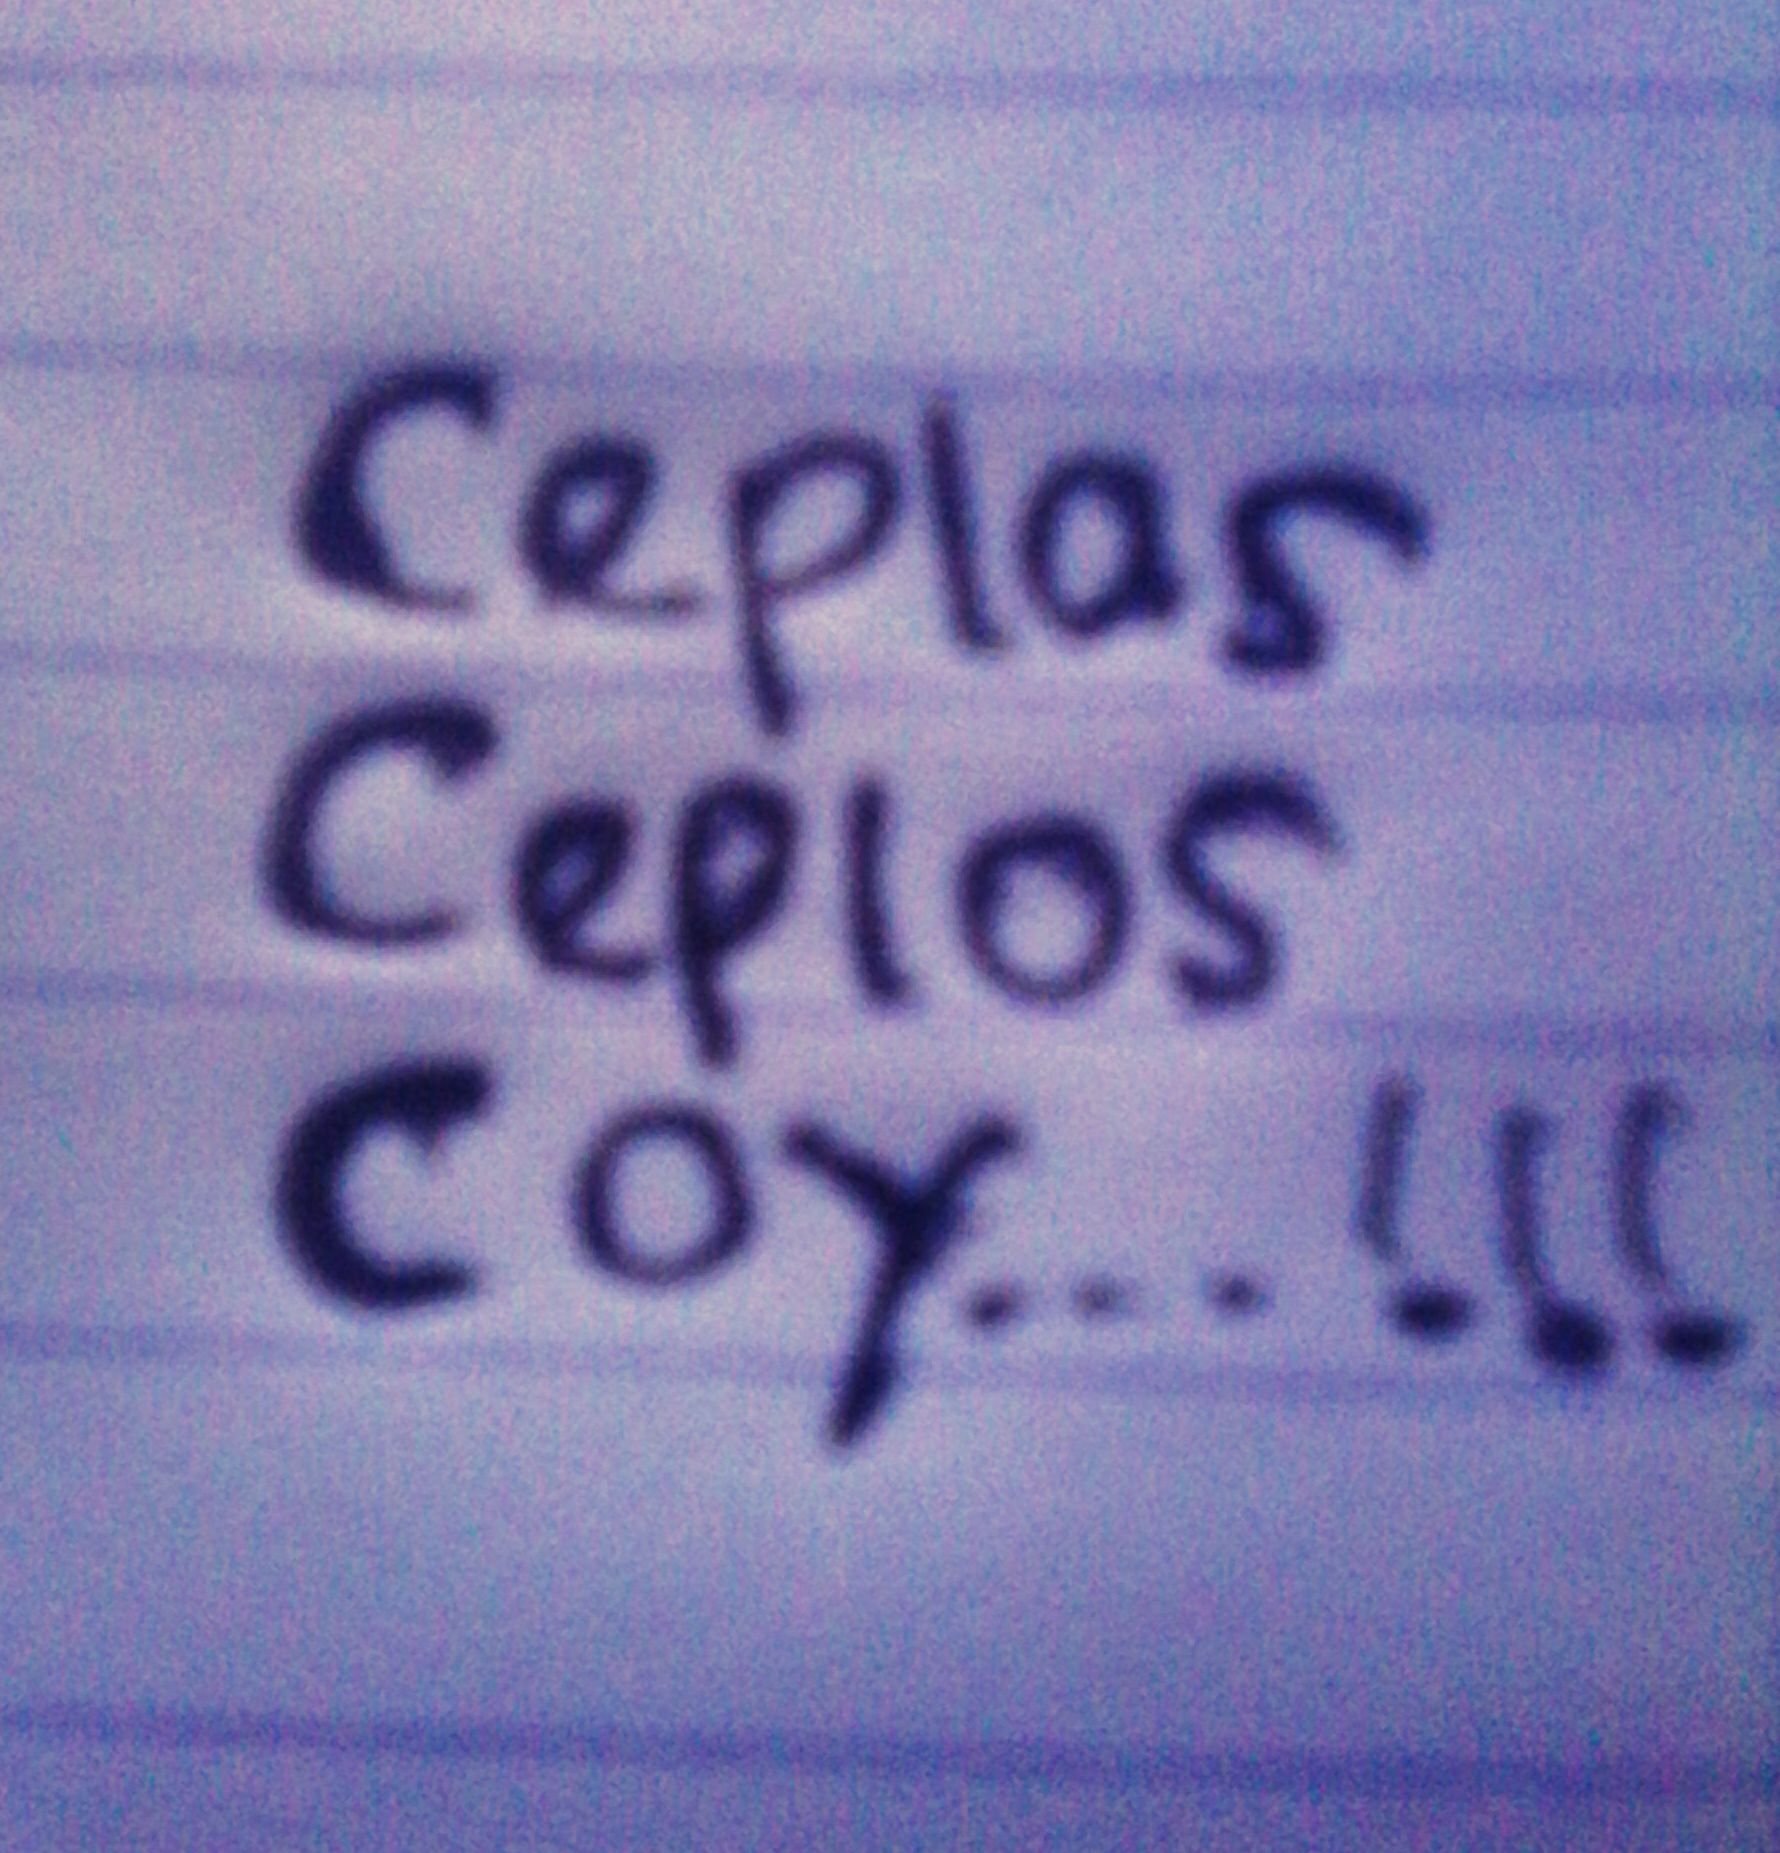 Ceplas
Ceplos
Coy...!!!